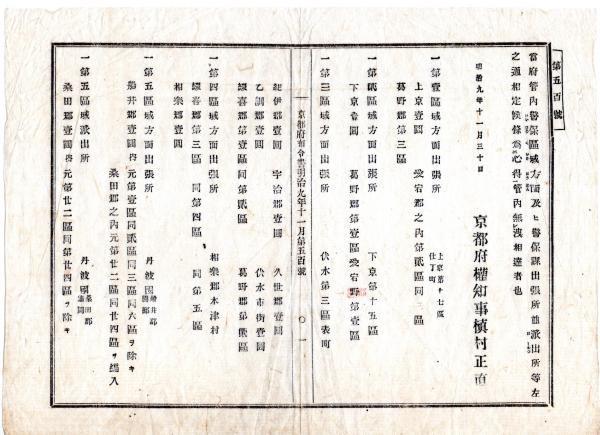 第五百號
當府管內警保區域方面及ヒ警保課出張所並派出所等左
之通相定候條爲心得管內無洩相達者也
明治九年十一月三十日
京都府權知事槇村正直
一第壹區域方面出張所
上京第十七區
仕丁町
上京壹圓 愛宕郡之內第貳區同 區
葛野郡第三區
一第貳區域方面出張所 下京第十五區
下京壹圓 葛野郡第壹區愛宕野第壹區
一第三區域方面出張所 伏水第三區表町
京都府布令書明治九年十一月第五百號 〇一
紀伊郡壹圓 宇治郡壹圓 久世郡壹圓
乙訓郡壹圓 伏水市街壹圓
綴喜郡第壹區同第貳區 葛野郡第貳區
一第四區域方面出張所 相樂郡木津村
綴喜郡第三區 同第四區 同第五區
相樂郡壹圓
一第五區域方面出張所 丹波國船井郡
船井郡壹圓內元第壹區同貳區同三區同六區ヲ除キ
桑田郡之內元第廿二區同廿四區ヲ編入
一第五區域派出所 丹波國桑田郡
桑田郡壹圓內元第廿二區同第廿四區ヲ除ク